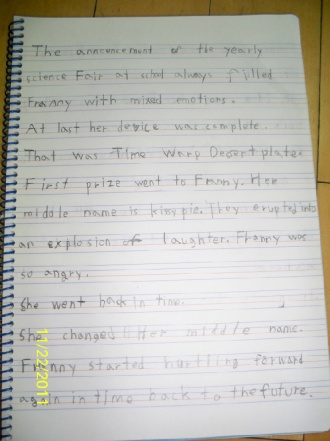 The announcement of the yearly
science Fair at schol always filled
Franny with mixed emotions.
At last her device was complete.
That was Time Warp Desert plate.
First prize went to Franny. Her
middle name is kissypie. They erupted into
an explosion of laughter. Franny was
so angry.
She went back in time.
She changed her middle name.
Franny started hurtling forward
again in time back to the future.
11/22/201